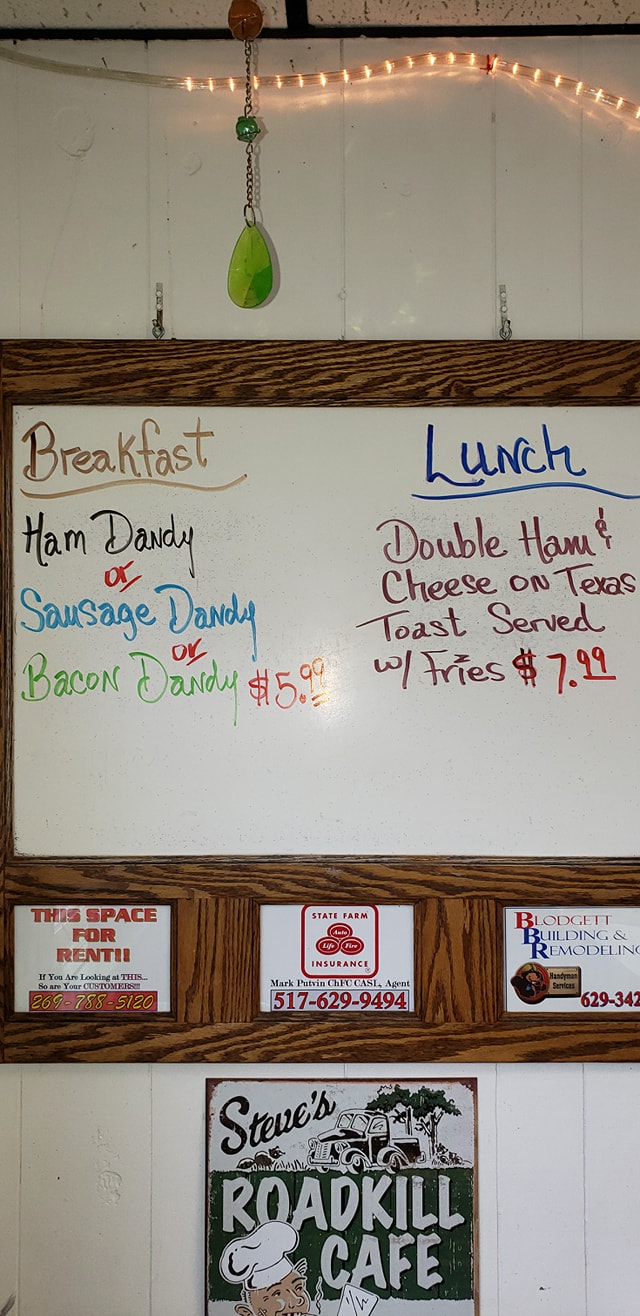 Breakfast
Ham Dandy
or
Sausage Dandy
or
Bacon Dandy $5.99
Lunch
Double Ham &
Cheese on Texas
Toast Served
w/ Fries $7.99
THIS SPACE
FOR
RENT!!
If You Are Looking at THIS...
So are Your CUSTOMERS!!!
269-788-5120
STATE FARM
Auto
Life Fire
INSURANCE
Mark Putvin ChFC CASL, Agent
517-629-9494
BLODGETT
BUILDING &
REMODELING
Handyman
Services
629-342
Steve's
ROADKILL
CAFE